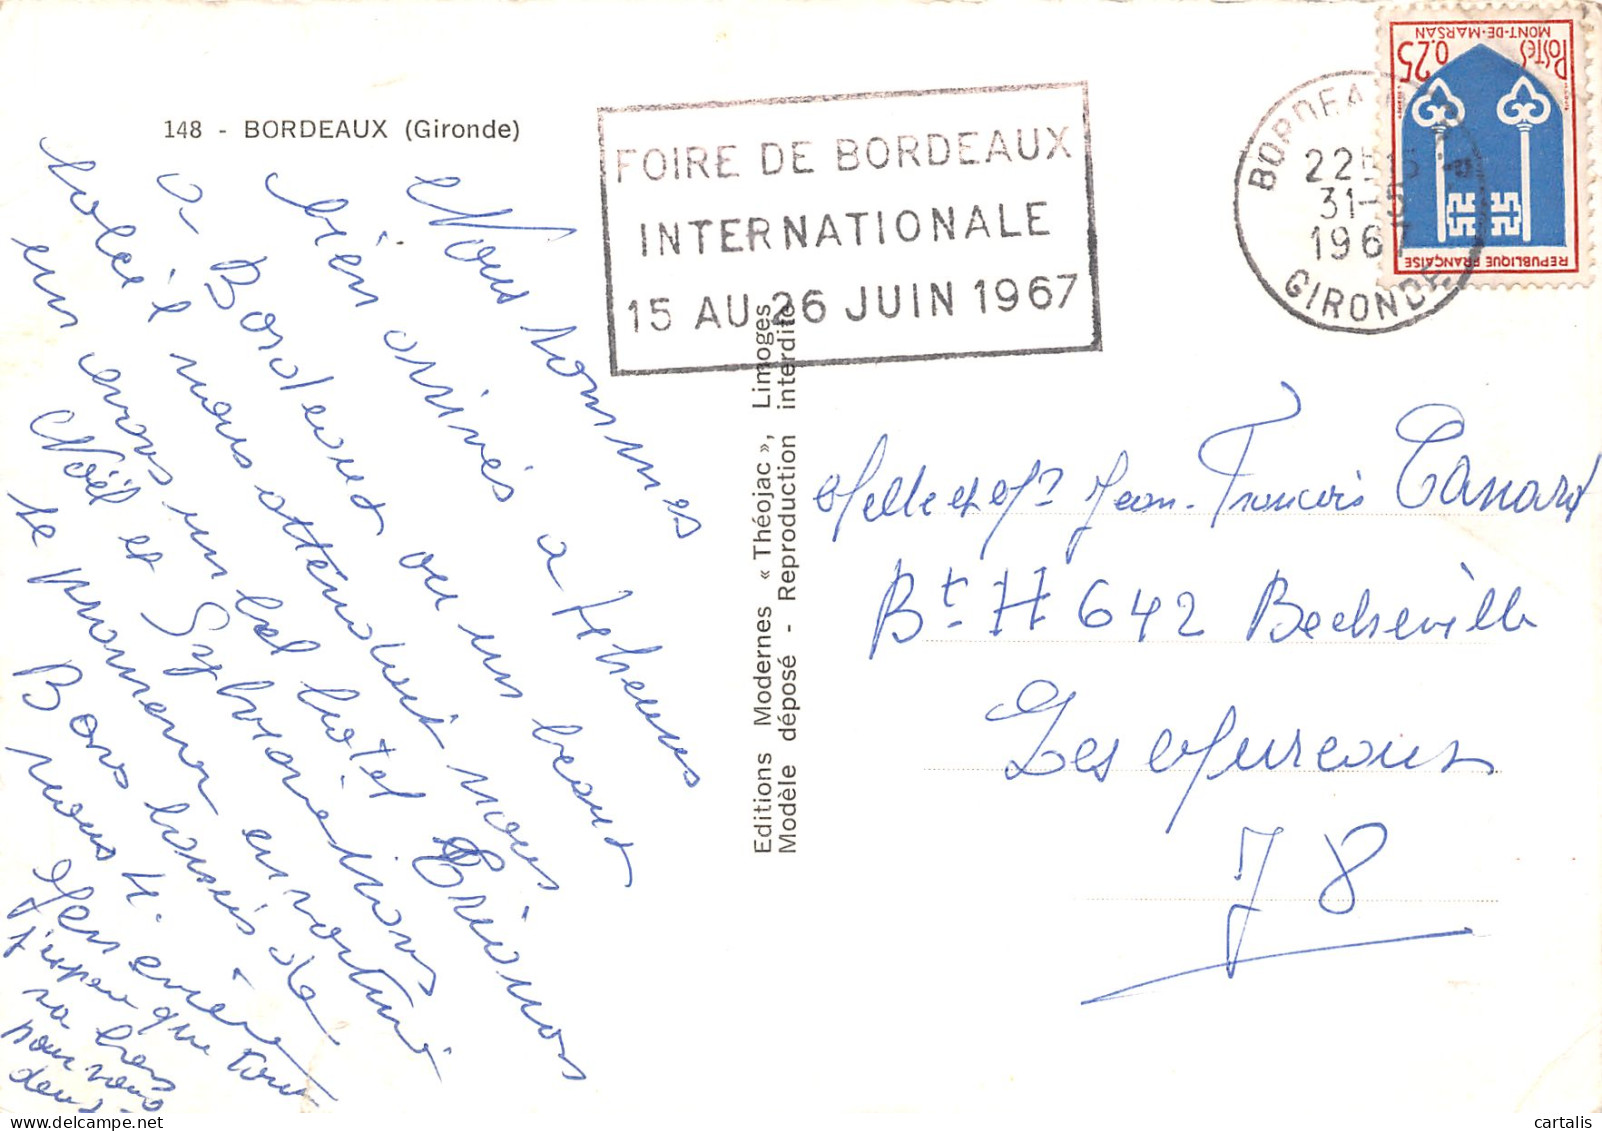 148 - BORDEAUX (Gironde)
Nous sommes
bien arrivés a 7 heures
a Bordeaux ou un beau
soleil nous attendait nous
en avons un bel hotel Trianon
Noël et Sylviane
se promener en voiture
Bons baisers de
nous 4.
J'espère que tout
va bien
pour vous
deux
FOIRE DE BORDEAUX
INTERNATIONALE
15 AU 26 JUIN 1967
BORDEA
22H15
31-5
1967
GIRONDE
POSTES
0,25
MONT-DE-MARSAN
REPUBLIQUE FRANÇAISE
Editions Modernes « Théojac », Limoges
Modèle déposé - Reproduction interdite
Melle et Mr Jean-François Canard
Bt H 642 Becheville
Les Mureaux
78
cartalis
delcampe.net